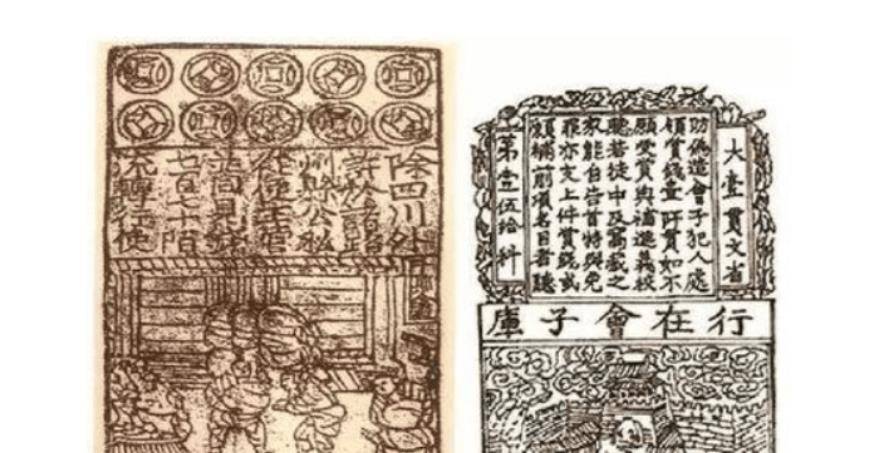 除四川外
許於諸路
州縣公私
從便主管
並同見錢
七百七十陌
流轉行使
大壹貫文省
防偽造會子犯人處
領賞錢壹阡貫如不
願受賞與補進義校
聽若徒中及窩藏之
家能自告首特與免
罪亦支上件賞錢或
願補前項名目者聽
第壹伍拾料
行在會子庫